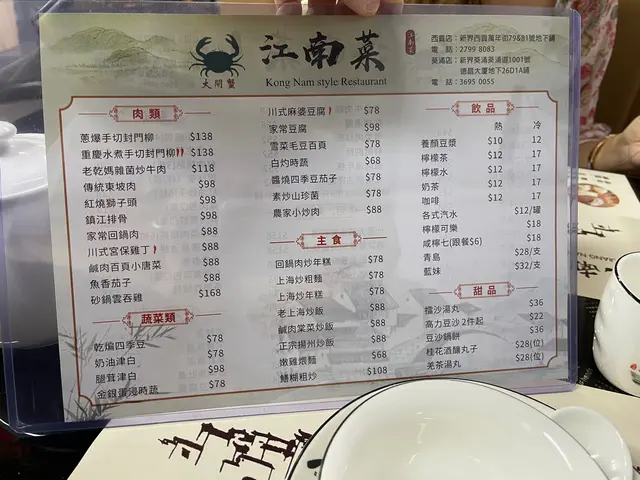 大閘蟹
江南菜
Kong Nam style Restaurant
西貢店：新界西貢萬年街79&81號地下鋪
電 話：2799 8083
葵涌店：新界葵涌葵涌道1001號
德昌大廈地下26D1A鋪
電 話：3695 0055
肉類
蔥爆手切封門柳 $138
重慶水煮手切封門柳 $138
老乾媽雜菌炒牛肉 $118
傳統東坡肉 $98
紅燒獅子頭 $98
鎮江排骨 $98
家常回鍋肉 $88
川式宮保雞丁 $88
鹹肉百頁小唐菜 $88
魚香茄子 $88
砂鍋雲吞雞 $168
蔬菜類
乾煸四季豆 $78
奶油津白 $78
腿茸津白 $98
金銀蛋浸時蔬 $78
川式麻婆豆腐 $78
家常豆腐 $98
雪菜毛豆百頁 $78
白灼時蔬 $68
醬燒四季豆茄子 $78
素炒山珍菌 $78
農家小炒肉 $88
主食
回鍋肉炒年糕 $78
上海炒粗麵 $78
上海炒年糕 $78
老上海炒飯 $88
鹹肉棠菜炒飯 $88
正宗揚州炒飯 $88
嫩雞煨麵 $68
鱔糊粗炒 $108
飲品
熱 冷
養顏豆漿 $10 12
檸檬茶 $12 17
檸檬水 $12 17
奶茶 $12 17
咖啡 $12 17
各式汽水 $12/罐
檸檬可樂 $18
咸檸七(跟餐$6) $18
青島 $28/支
藍妹 $32/支
甜品
擂沙湯丸 $36
高力豆沙2件起 $22
豆沙鍋餅 $36
桂花酒釀丸子 $28(位)
羌茶湯丸 $28(位)